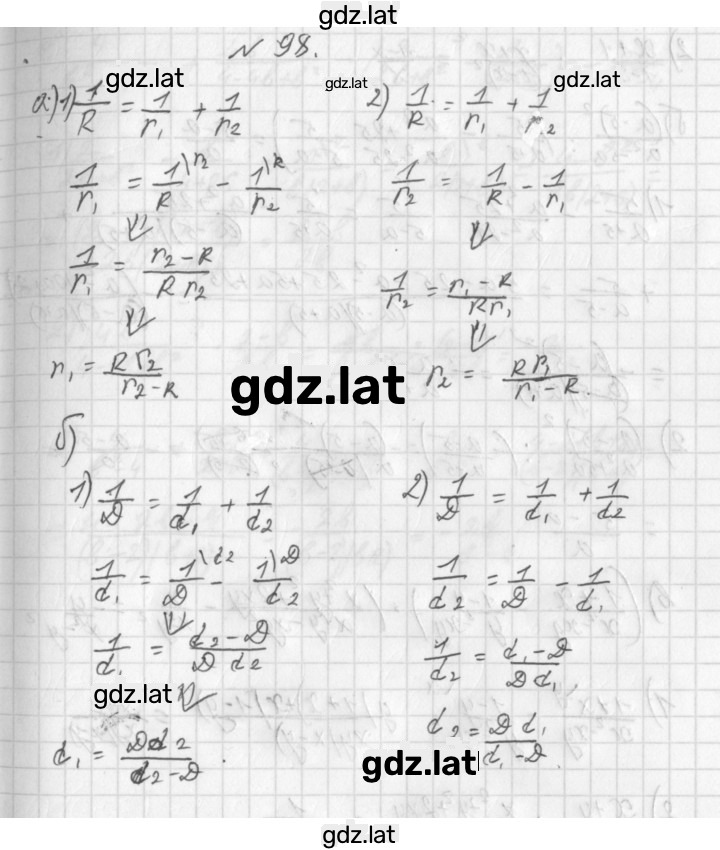 gdz.lat
№ 98.
gdz.lat gdz.lat gdz.lat
а) 1) 1/R = 1/r₁ + 1/r₂
1/r₁ = 1\r₂/R - 1\R/r₂
⇓
1/r₁ = r₂ - R/R r₂
⇓
r₁ = R r₂/r₂ - R
2) 1/R = 1/r₁ + 1/r₂
1/r₂ = 1/R - 1/r₁
⇓
1/r₂ = r₁ - R/R r₁
⇓
r₂ = R r₁/r₁ - R.
gdz.lat
б)
1) 1/D = 1/d₁ + 1/d₂
1/d₁ = 1\d₂/D - 1\D/d₂
⇓
1/d₁ = d₂ - D/D d₂
gdz.lat
⇓
d₁ = D d₂/d₂ - D.
2) 1/D = 1/d₁ + 1/d₂
1/d₂ = 1/D - 1/d₁
1/d₂ = d₁ - D/D d₁
d₂ = D d₁/d₁ - D.
gdz.lat
gdz.lat